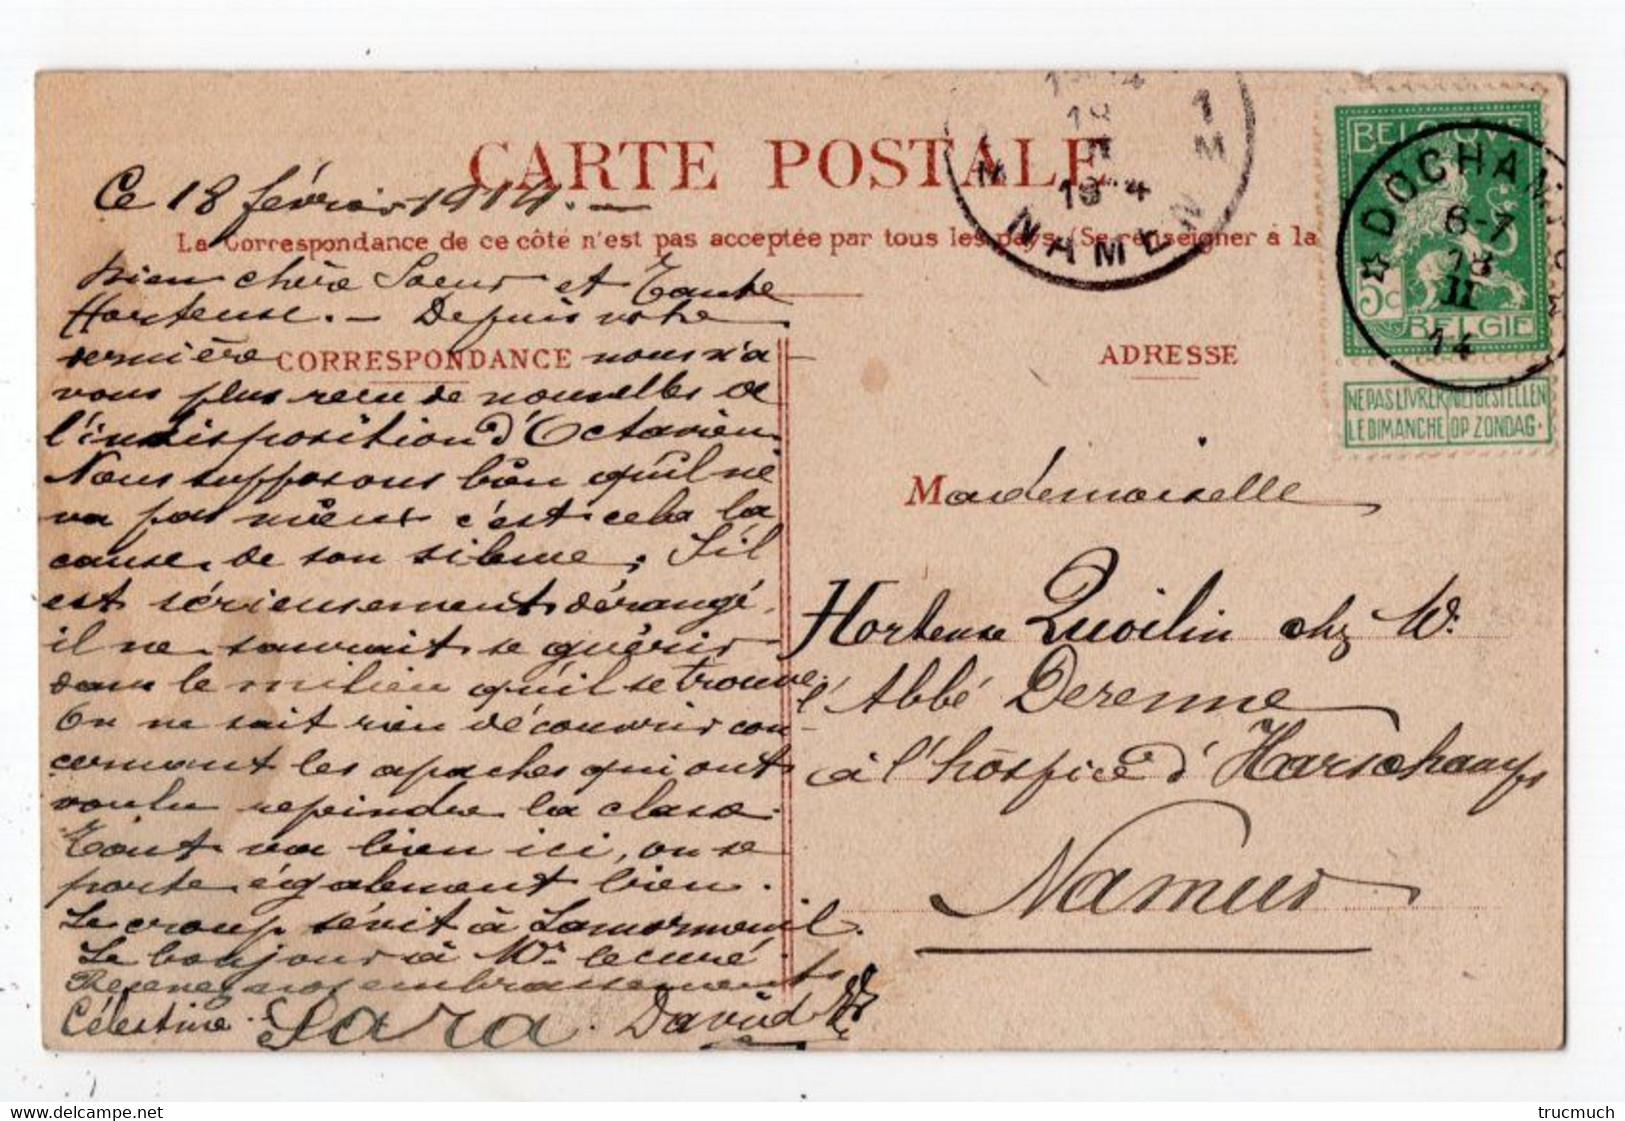 CARTE POSTALE
Ce 18 février 1914. —
La correspondance de ce côté n'est pas acceptée par tous les pays (Se renseigner à la
Bien chère Soeur et Tante
Hortense. — Depuis votre
dernière nous n'a
CORRESPONDANCE
vous plus recu de nouvelles de
l'indisposition d'Octavien
Nous supposons bien qu'il ne
va pas mieux c'est cela la
cause de son silence. S'il
est sérieusement dérangé
il ne saurait se guérir
dans le milieu qu'il se trouve.
On ne sait rien découvrir con-
cernant les apaches qui ont
voulu repeindre la classe.
Tout va bien ici, on se
porte également bien.
Le croup sévit à Lamormenil.
Le bonjour à Mr le curé.
Recevez nos embrassements
Célestine. Sara. David
ADRESSE
Mademoiselle
Hortense Quoilin chez Mr
l'Abbé Derenne
à l'hospice d'Harscamp
Namur
NAMEN
1
M
BELGIQUE
5c
BELGIË
NE PAS LIVRER LE DIMANCHE
NIET BESTELLEN OP ZONDAG
DOCHAN
6-7
18
II
14
Delcampe.net
trucmuch